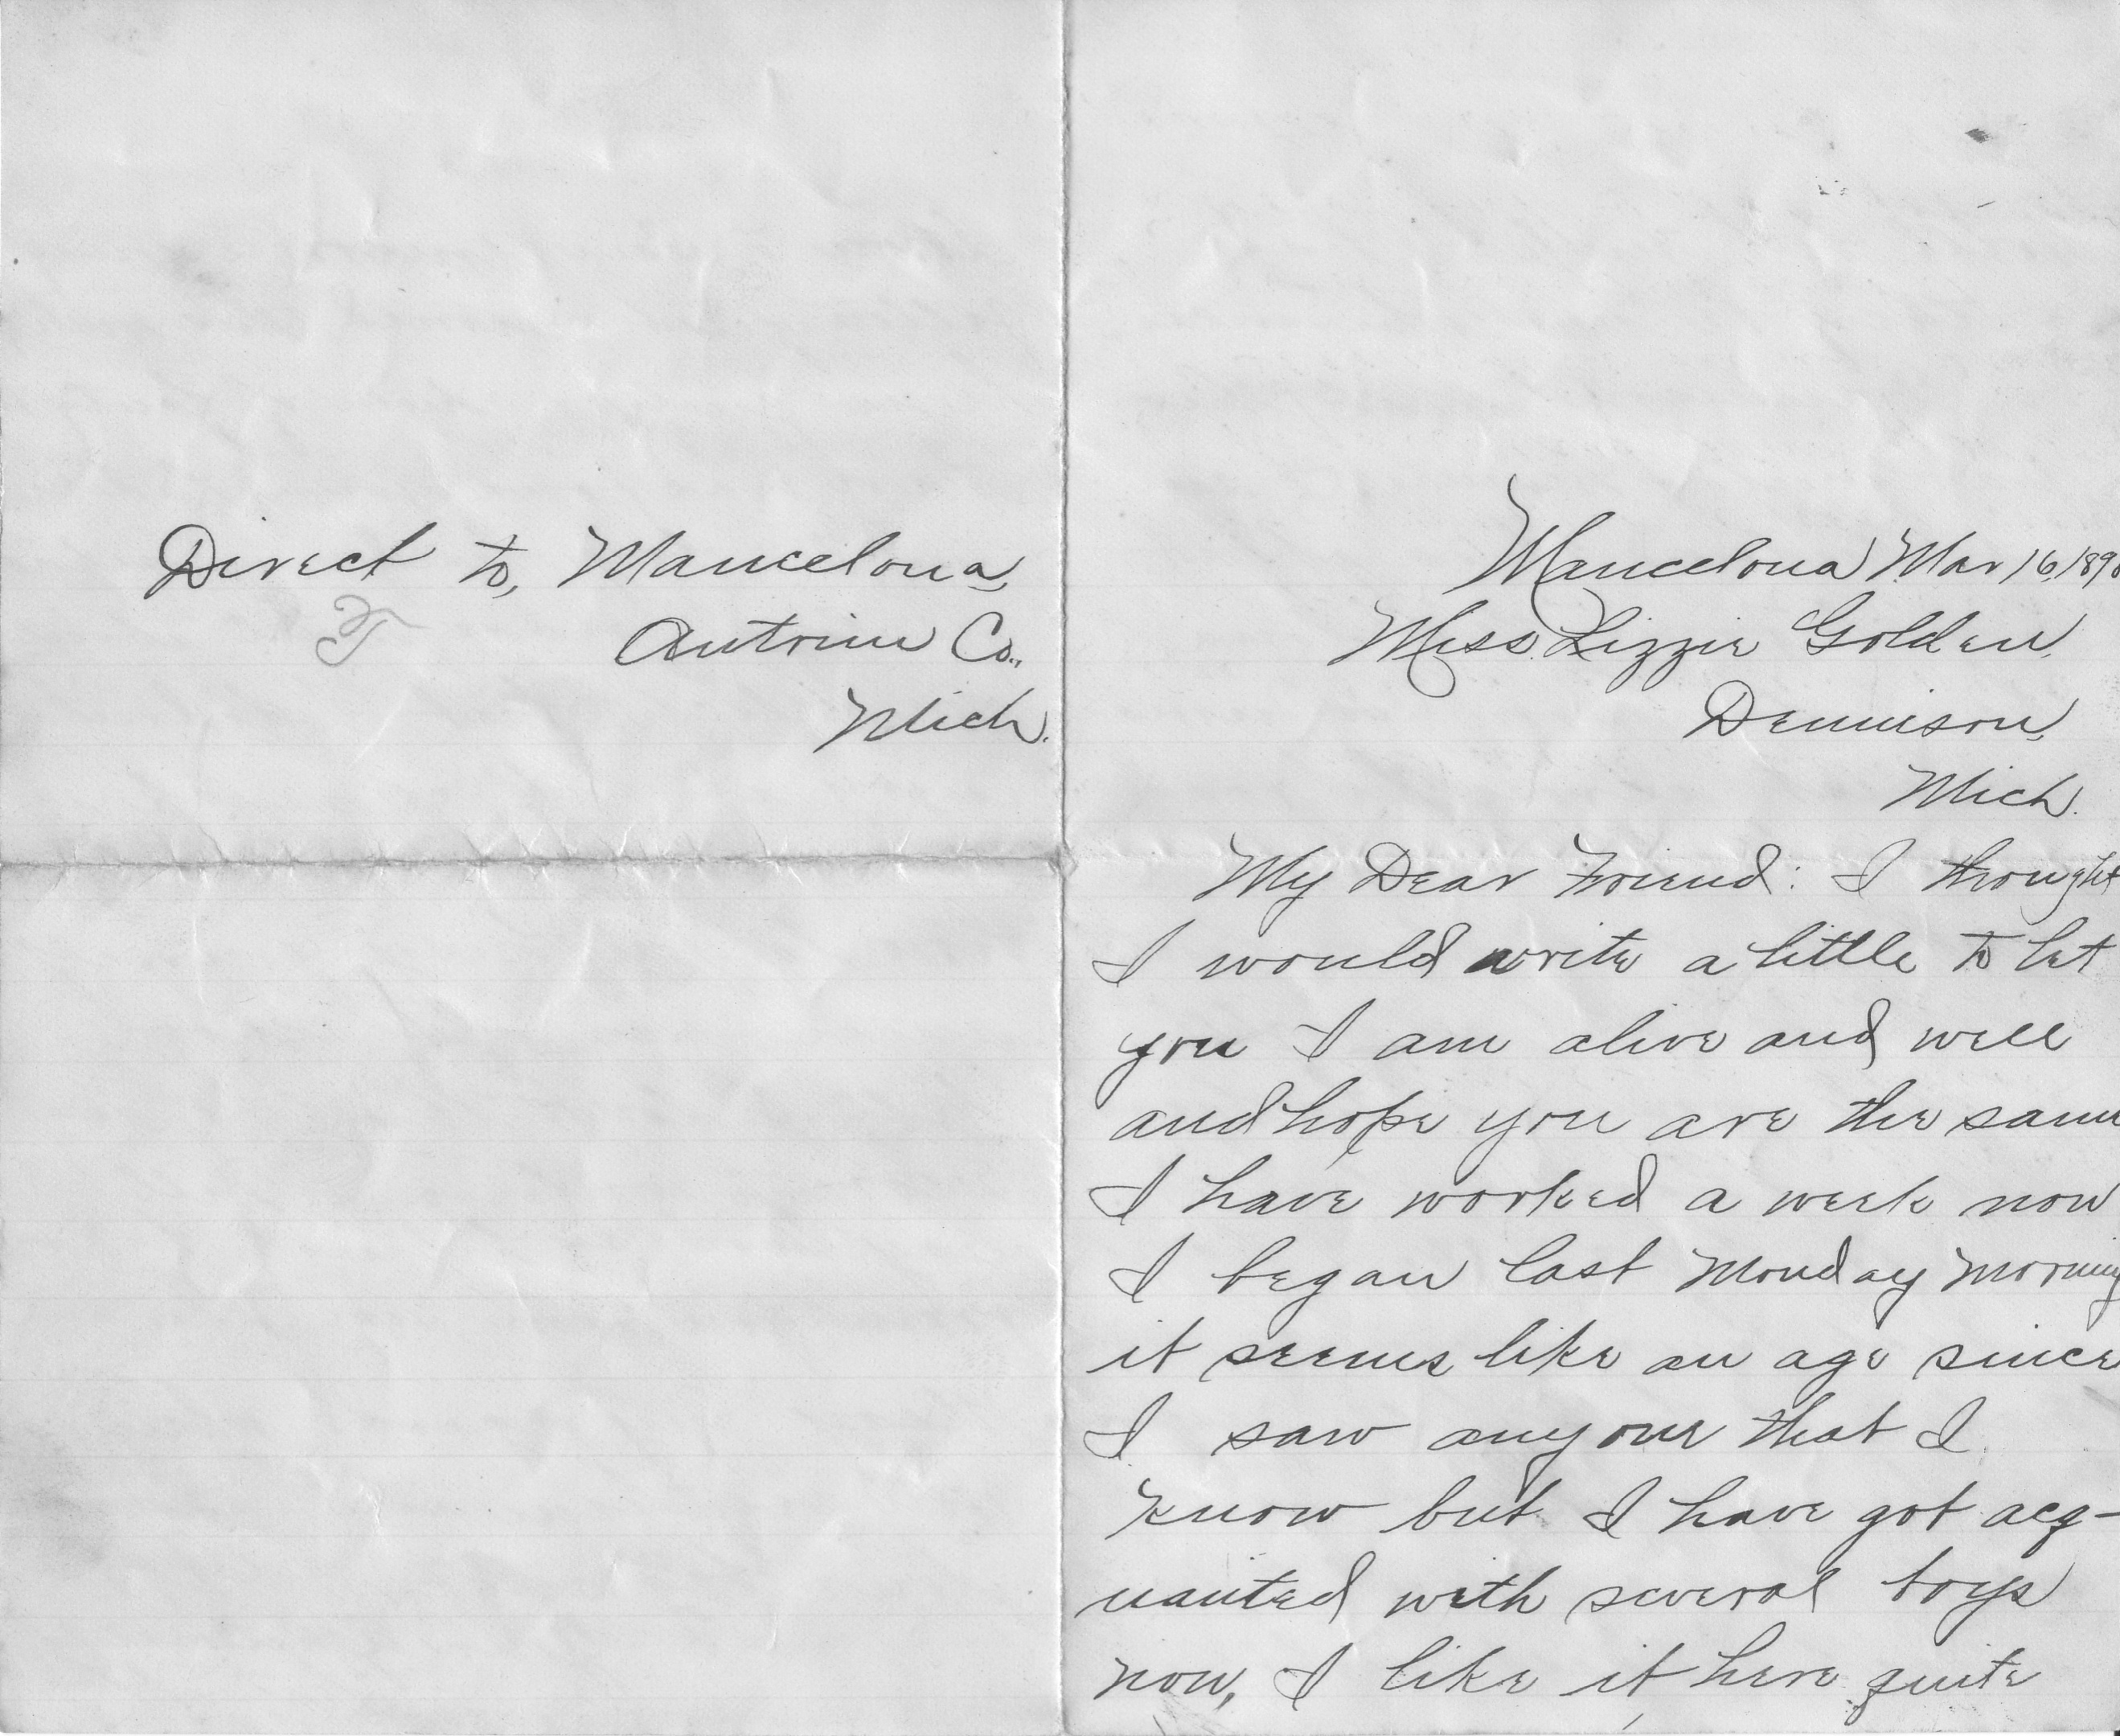 Direct to, Mancelona,
Antrim Co.,
Mich.
Mancelona Mar 16, 1890
Miss. Lizzie Golden,
Dennison,
Mich.
My Dear Friend: I thought
I would write a little to let
you I am alive and well
and hope you are the same
I have worked a week now
I began last Monday morning
it seems like an age since
I saw anyone that I
know but I have got acq-
uanted with several boys
now, I like it here quite